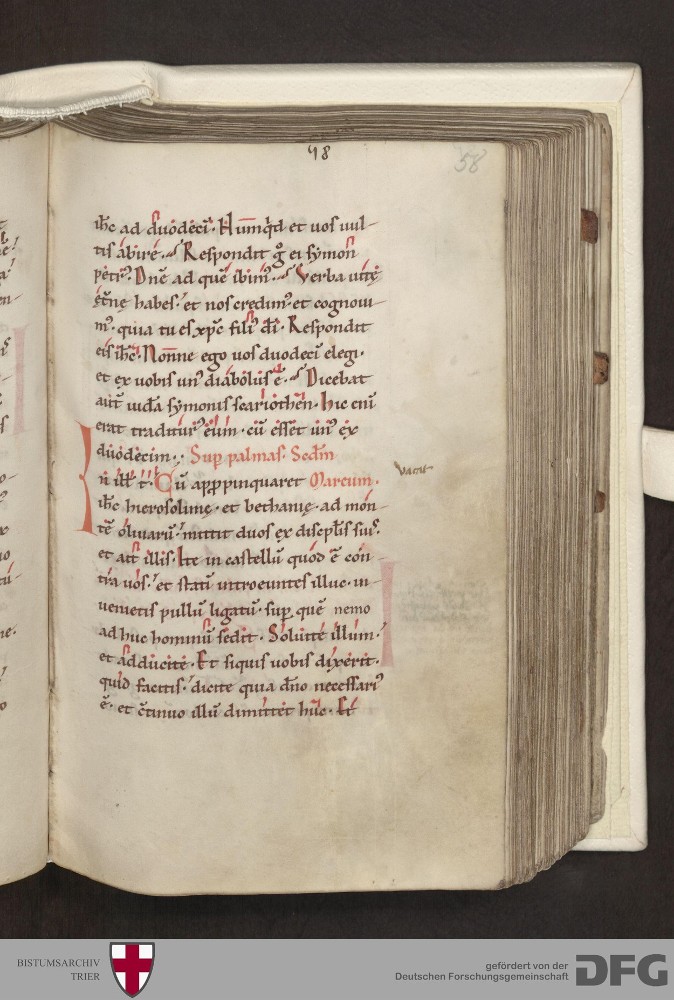 48
58
ih̅c ad duodeci̅. Numq̇d et uos uul-
tis abire. Respondit g̊ ei symon
petr᾿. Dn̅e ad que̅ ibim᾿. Verba uitę
et̅nę habes. et nos credim᾿ et cognoui-
m᾿. quia tu es xp̅c fili᾿ di̅. Respondit
eis ih̅c. Nonne ego uos duodeci̅ elegi.
et ex uobis un᾿ diabolus e̅. Dicebat
aut̅ iuda̅ symonis scariothen. hic eni̅
erat traditur᾿ eum. cu̅ esset un᾿ ex
duodecim. Sup palmas. Scd̅m
In ill̅ t. Cu̅ appropinquaret Marcum.
ih̅c hierosolimę. et bethanię. ad mon-
te̅ oliuaru̅. mittit duos ex discipl̅is suis.
et ait illis. Ite in castellu̅ quod e̅ con-
tra uos. et stati̅ introeuntes illuc. in-
uenietis pullu̅ ligatu̅. sup que̅ nemo
ad huc hominu̅ sedit. Soluite illum.
et adducite. Et siquis uobis dixerit.
quid facitis. dicite quia dn̅o necessari᾿
e̅. et c̅tinuo illu̅ dimittet huc. Et
BISTUMSARCHIV
TRIER
gefördert von der
Deutschen Forschungsgemeinschaft
DFG